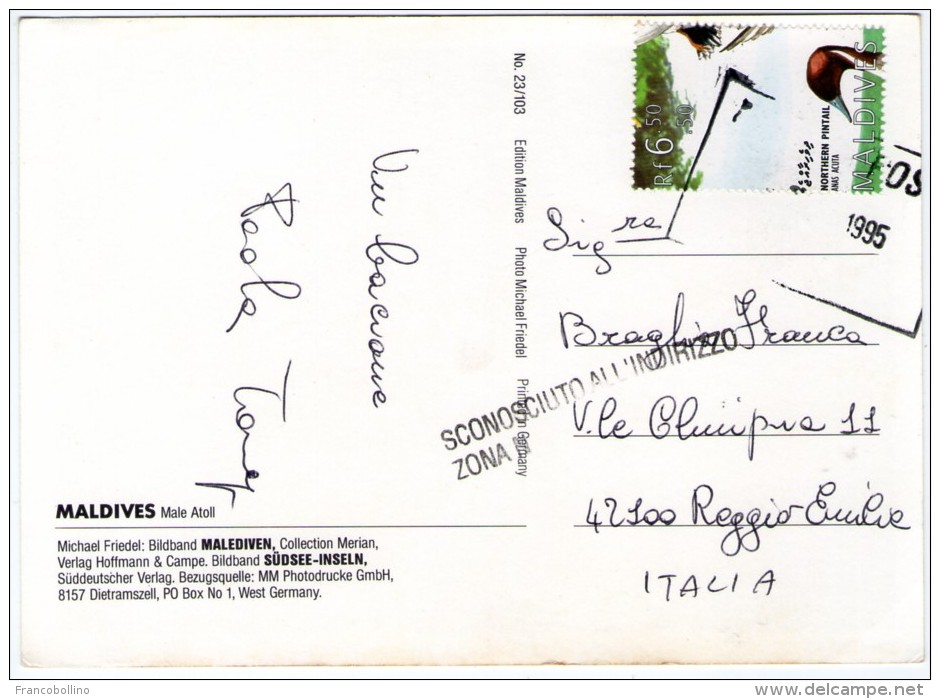 Rf 6.50
.50
NORTHERN PINTAIL
ANAS ACUTA
MALDIVES
OS
1995
No. 23/103 Edition Maldives Photo Michael Friedel Printed in Germany
Un bacione
Paola
Sig.ra
Franca
V.le 11
42100 Reggio Emilia
ITALIA
SCONOSCIUTO ALL'INDIRIZZO
ZONA
MALDIVES Male Atoll
Michael Friedel: Bildband MALEDIVEN, Collection Merian,
Verlag Hoffmann & Campe. Bildband SÜDSEE-INSELN,
Süddeutscher Verlag. Bezugsquelle: MM Photodrucke GmbH,
8157 Dietramszell, PO Box No 1, West Germany.
Francobollino
delcampe.net